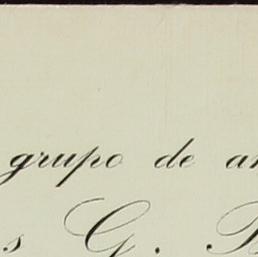 grupo de
s G.